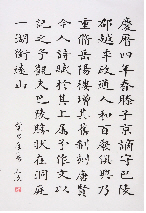 慶曆四年春滕子京謫守巴陵
郡越年政通人和百廢興乃
重修岳陽樓增其舊制刻唐賢
今人詩賦於其上屬予作文以
記之予觀夫巴陵勝狀在洞庭
一湖銜遠山